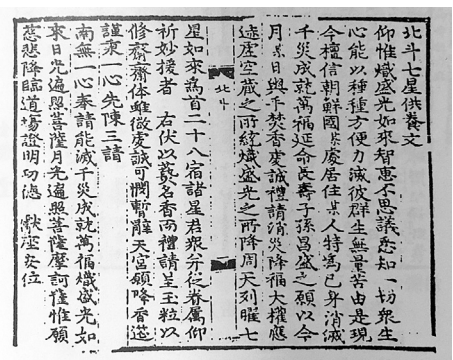 北斗七星供養文
仰惟熾盛光如來智惠不思議悉知一切衆生
心能以種種方便力滅彼群生無量苦由是現
今檀信朝鮮國某處居住某人特為己身消滅
千災成就萬福延命長壽子孫昌盛之願以今
月某日與予焚香虔誠禮請消災降福大權應
迹虛空藏之所統熾盛光之所降周天列曜七
北斗
星如來為首二十八宿諸星君衆并從眷厲仰
祈妙援者 右伏以爇名香而禮請呈玉粒以
修齋齋体雖微虔誠可憫暫辭天宮願降香筵
謹秉一心先陳三請
南無一心奉請能滅千災成就萬福熾盛光如
來日光遍照菩薩月光遍照菩薩摩訶薩惟願
慈悲降臨道場證明功德 獻座安位